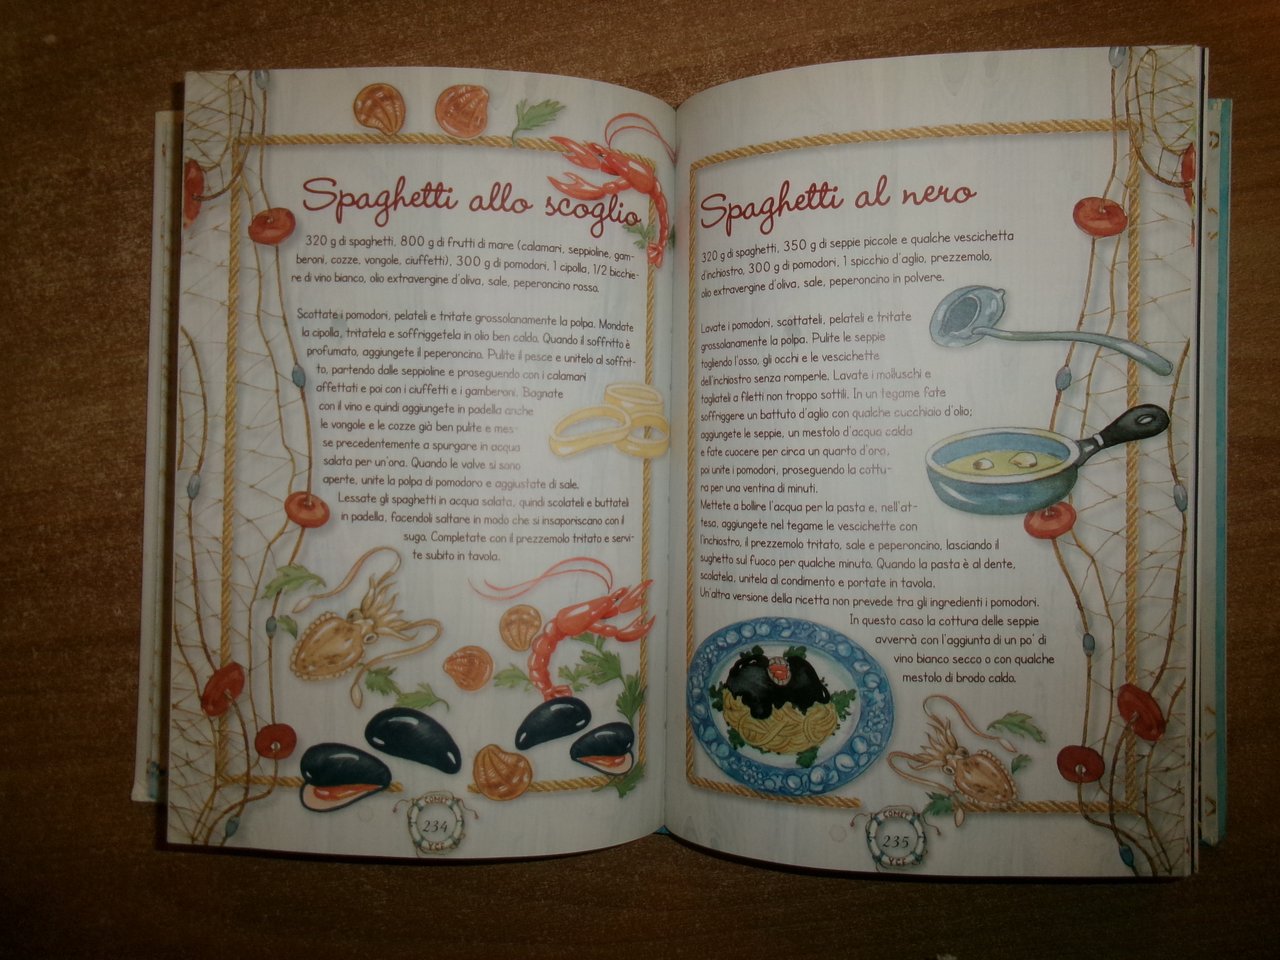 Spaghetti allo scoglio
320 g di spaghetti, 800 g di frutti di mare (calamari, seppioline, gam-
beroni, cozze, vongole, ciuffetti), 300 g di pomodori, 1 cipolla, 1/2 bicchie-
re di vino bianco, olio extravergine d'oliva, sale, peperoncino rosso.
Scottate i pomodori, pelateli e tritate grossolanamente la polpa. Mondate
la cipolla, tritatela e soffriggetela in olio ben caldo. Quando il soffritto è
profumato, aggiungete il peperoncino. Pulite il pesce e unitelo al soffrit-
to, partendo dalle seppioline e proseguendo con i calamari
affettati e poi con i ciuffetti e i gamberoni. Bagnate
con il vino e quindi aggiungete in padella anche
le vongole e le cozze già ben pulite e mes-
se precedentemente a spurgare in acqua
salata per un'ora. Quando le valve si sono
aperte, unite la polpa di pomodoro e aggiustate di sale.
Lessate gli spaghetti in acqua salata, quindi scolateli e buttateli
in padella, facendoli saltare in modo che si insaporiscano con il
sugo. Completate con il prezzemolo tritato e servi-
te subito in tavola.
COMET
234
Y.C.F.
Spaghetti al nero
320 g di spaghetti, 350 g di seppie piccole e qualche vescichetta
d'inchiostro, 300 g di pomodori, 1 spicchio d'aglio, prezzemolo,
olio extravergine d'oliva, sale, peperoncino in polvere.
Lavate i pomodori, scottateli, pelateli e tritate
grossolanamente la polpa. Pulite le seppie
togliendo l'osso, gli occhi e le vescichette
dell'inchiostro senza romperle. Lavate i molluschi e
tagliateli a filetti non troppo sottili. In un tegame fate
soffriggere un battuto d'aglio con qualche cucchiaio d'olio;
aggiungete le seppie, un mestolo d'acqua calda
e fate cuocere per circa un quarto d'ora,
poi unite i pomodori, proseguendo la cottu-
ra per una ventina di minuti.
Mettete a bollire l'acqua per la pasta e, nell'at-
tesa, aggiungete nel tegame le vescichette con
l'inchiostro, il prezzemolo tritato, sale e peperoncino, lasciando il
sughetto sul fuoco per qualche minuto. Quando la pasta è al dente,
scolatela, unitela al condimento e portate in tavola.
Un'altra versione della ricetta non prevede tra gli ingredienti i pomodori.
In questo caso la cottura delle seppie
avverrà con l'aggiunta di un po' di
vino bianco secco o con qualche
mestolo di brodo caldo.
COMET
235
Y.C.F.